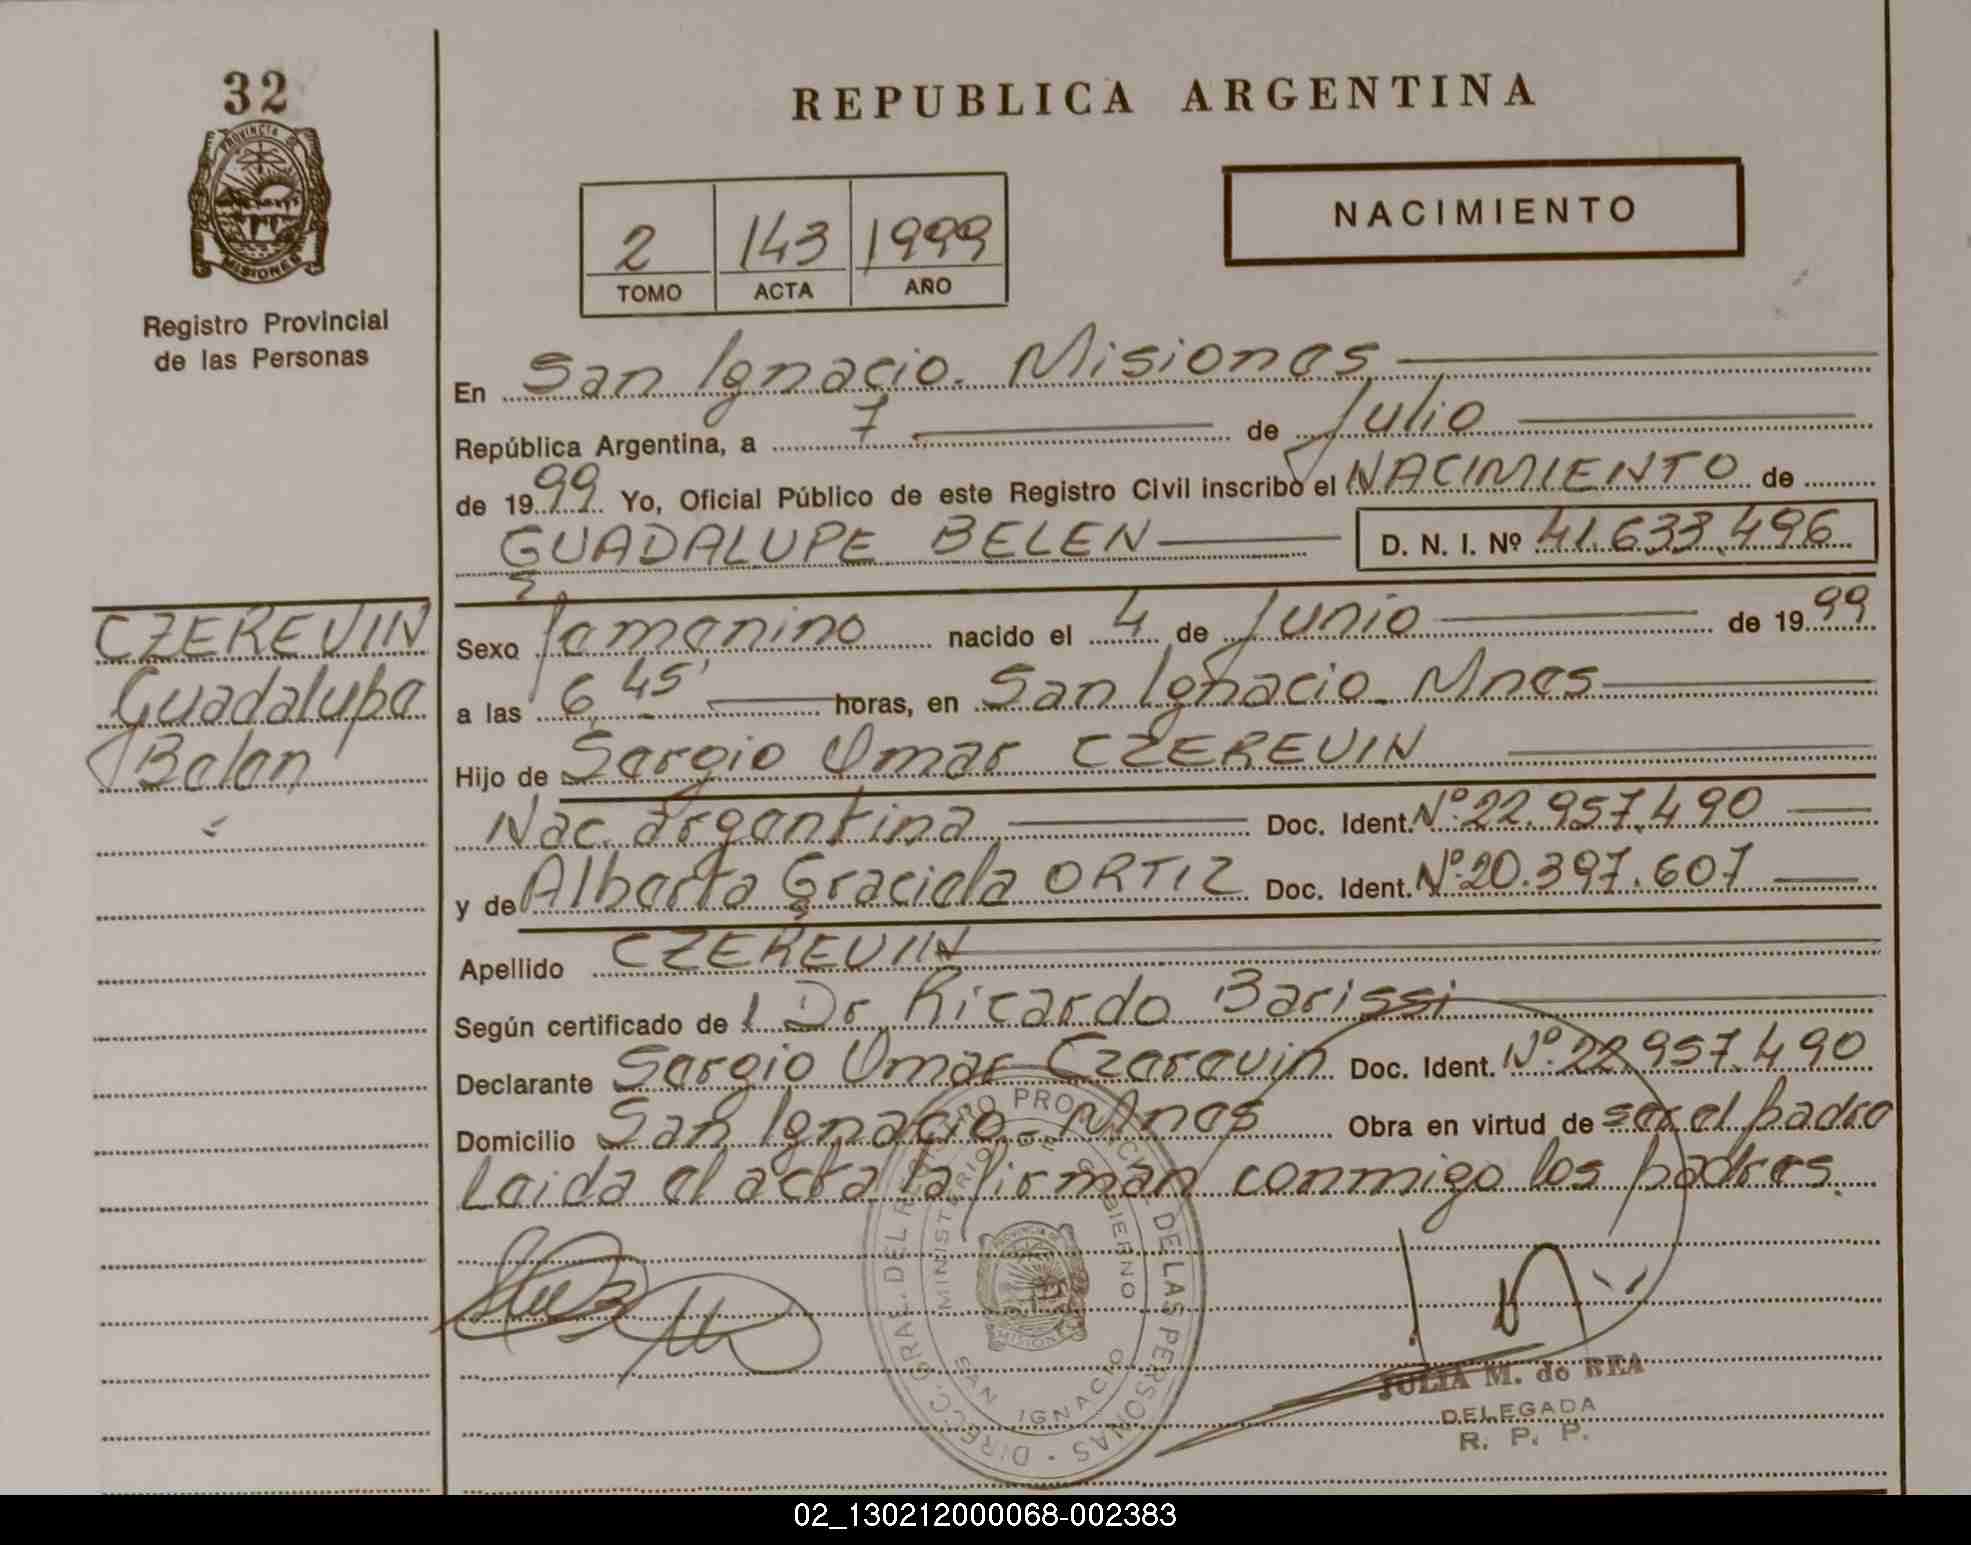 32
PROVINCIA DE
MISIONES
Registro Provincial
de las Personas
REPUBLICA ARGENTINA
2 143 1999
TOMO ACTA AÑO
NACIMIENTO
En San Ignacio. Misiones
República Argentina, a 7 de Julio
de 1999 Yo, Oficial Público de este Registro Civil inscribo el NACIMIENTO de
GUADALUPE BELEN D. N. I. Nº 41.633.496
CZEREVIN
Guadalupe
Belen
Sexo femenino nacido el 4 de Junio de 1999
a las 6,45' horas, en San Ignacio. Mnes
Hijo de Sergio Omar CZEREVIN
Nac. argentina Doc. Ident. Nº 22.957.490
y de Alberta Graciela ORTIZ Doc. Ident. Nº 20.397.607
Apellido CZEREVIN
Según certificado de l Dr Ricardo Barissi
Declarante Sergio Omar Czerevin Doc. Ident. Nº 22.957.490
Domicilio San Ignacio. Mnes Obra en virtud de ser el padre
Leida el acta la firman conmigo los padres.
DIRECC. GRAL. DEL REGISTRO PROVINCIAL DE LAS PERSONAS
MINISTERIO DE GOBIERNO
PROVINCIA DE
MISIONES
SAN IGNACIO
JULIA M. de REA
DELEGADA
R. P. P.
02_130212000068-002383